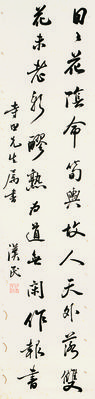 日〻花陰命筍輿故人天外落雙
花未老新醪熟為道無閑作報書
寺田先生属書
漢民